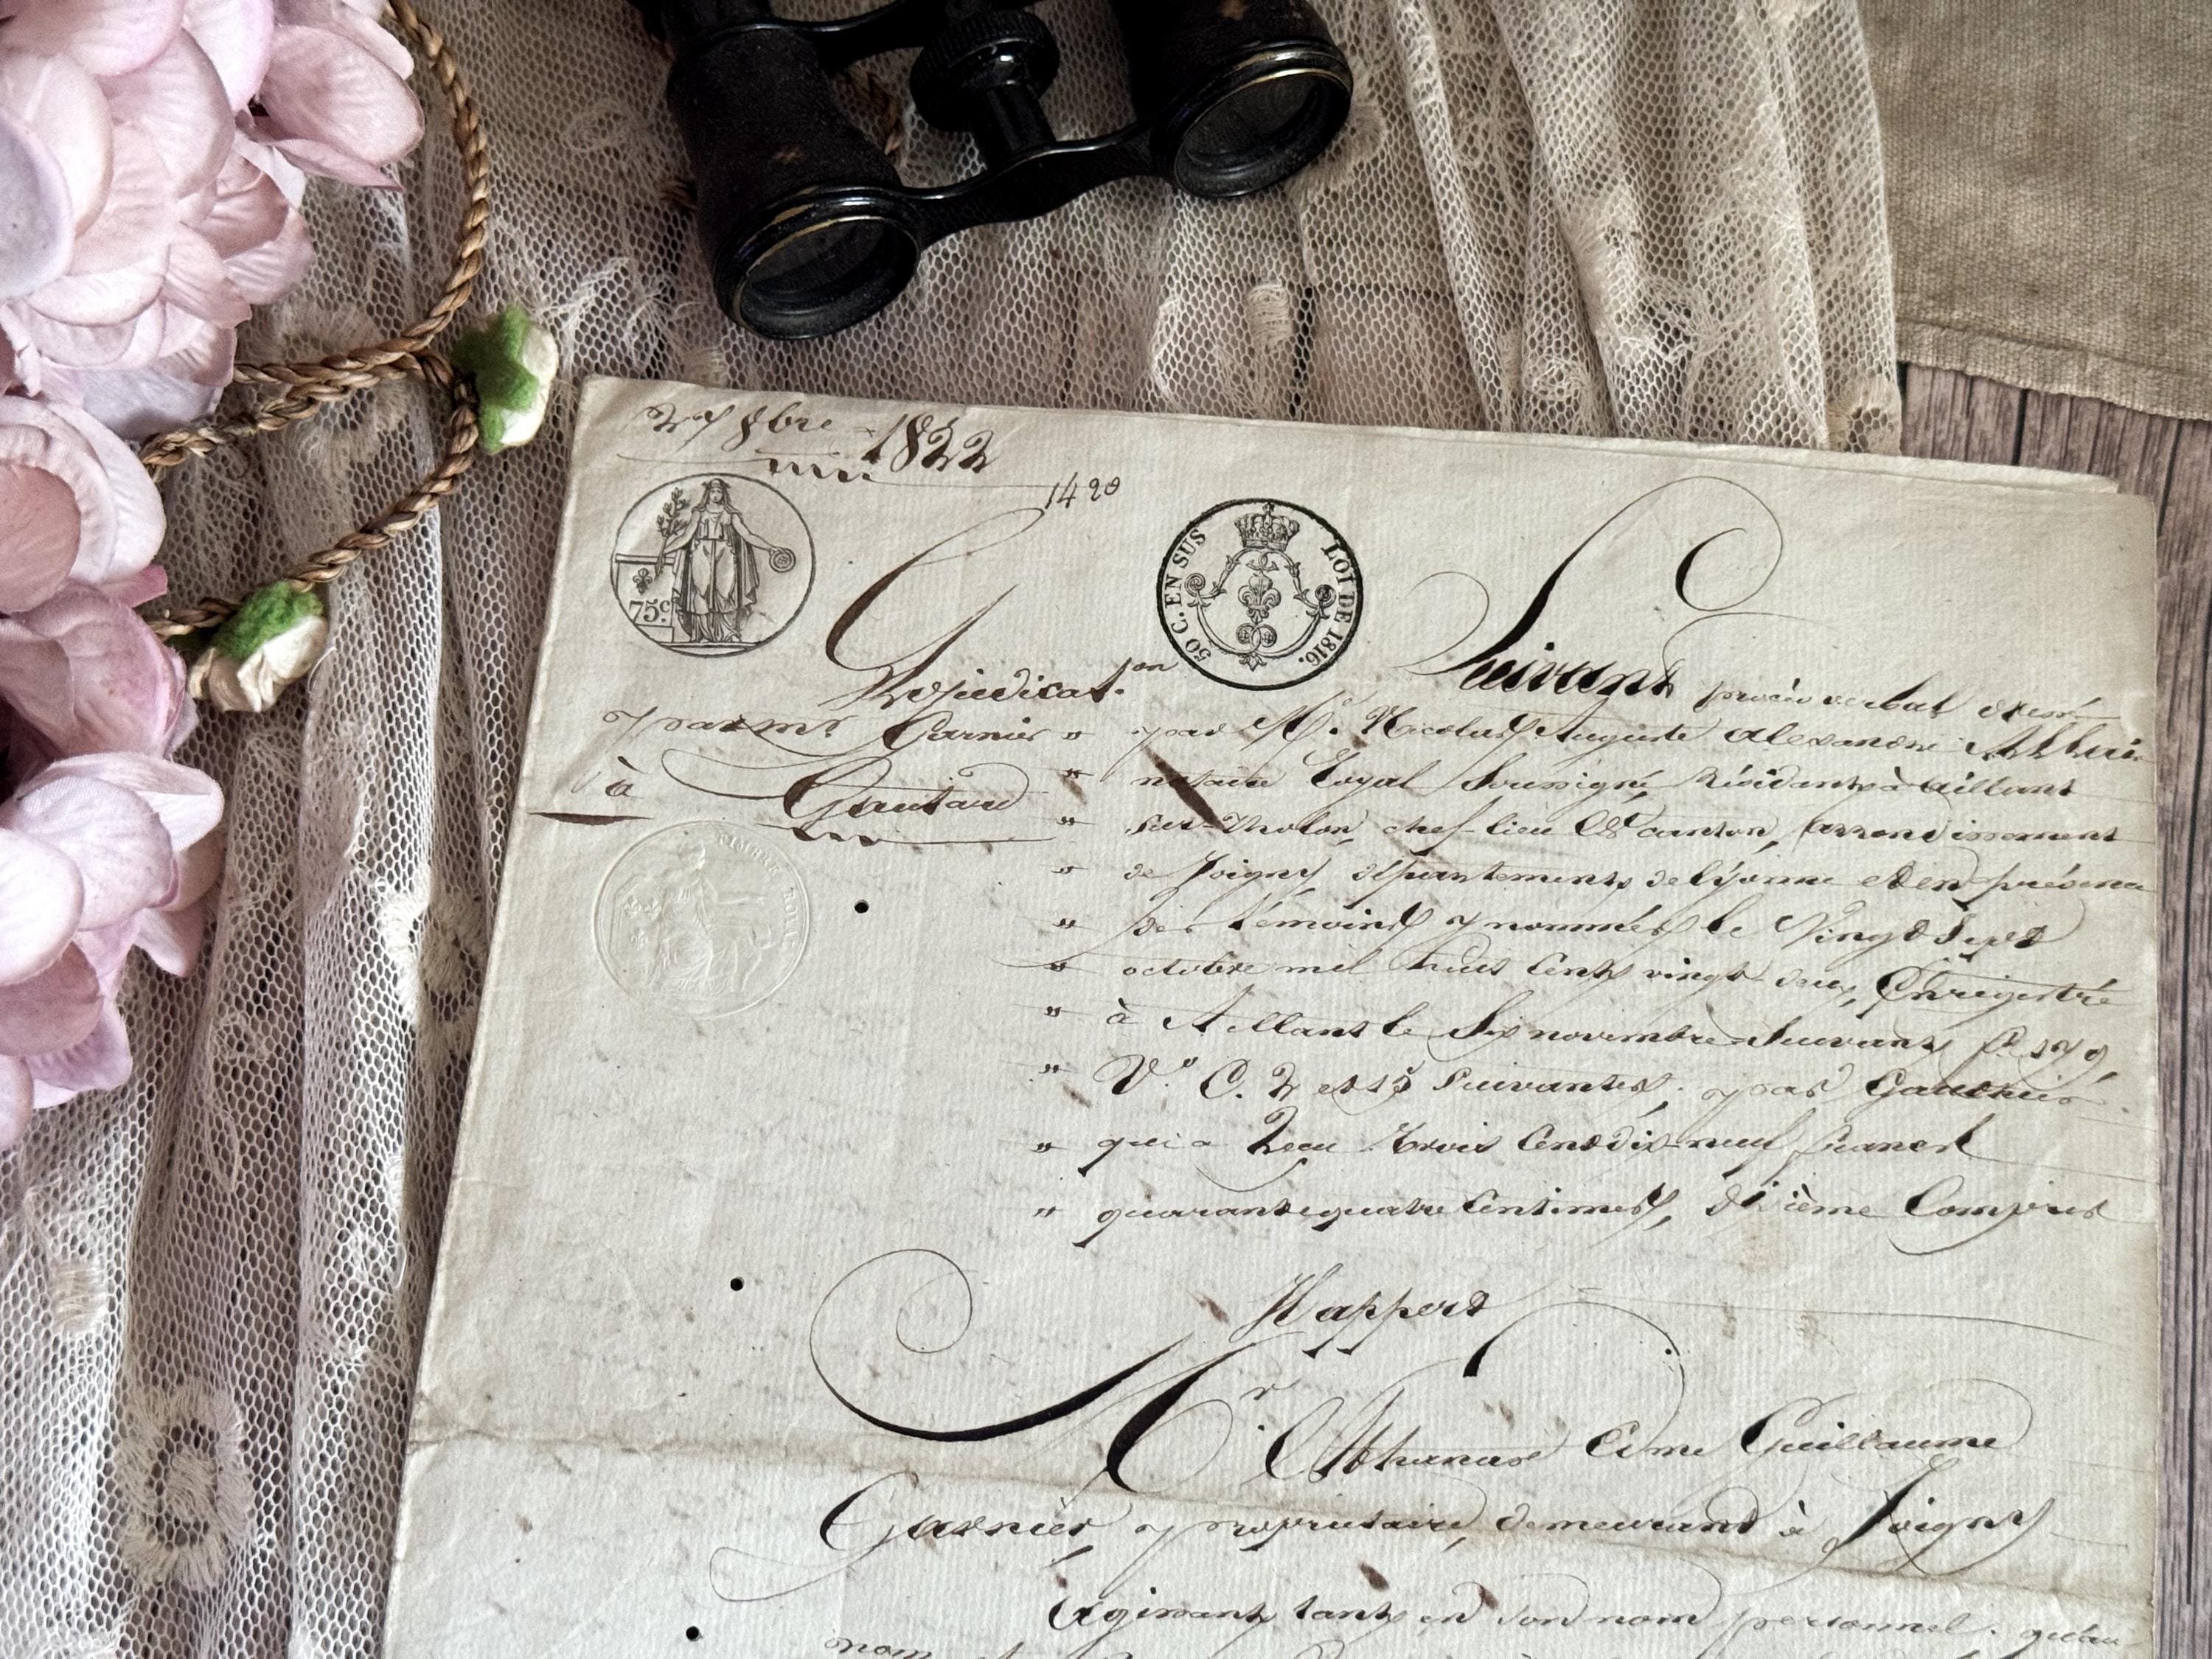 27 8bre 1822
1420
75c.
50 C. EN SUS LOI DE 1816.
Adjudicat.on
par Mr Garnier
à Gautard
TIMBRE ROYAL
Suivant procès verbal dressé
" par Me. Nicolas Auguste Alexandre
" notaire Royal Soussigné, Résidant à aillant
" sur-Tholon, chef-lieu de canton, arrondissement
" de Joigny, département de l'yonne et en présence
" des témoins y nommés le Vingt Sept
" octobre mil huit Cent vingt deux, Enregistré
" à Aillant le Six novembre Suivant fo 179,
" Vo C. 2 et 15 Suivantes, par Gauthier
" qui a Reçu trois Cent dix-neuf francs
" quarante quatre Centimes, dixième Compris
Appert
Mr. Athanase Edme Guillaume
Garnier, propriétaire, demeurant à Joigny
Agissant tant en son nom personnel, qu'au
nom